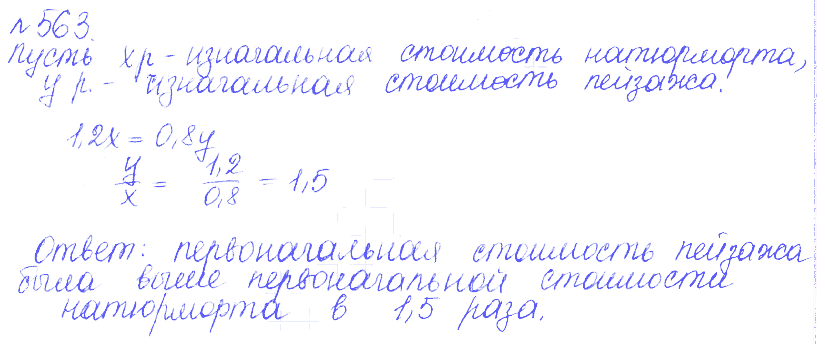 №563.
Пусть х р - изначальная стоимость натюрморта,
у р. - изначальная стоимость пейзажа.
1,2х = 0,8у
у/х = 1,2/0,8 = 1,5
Ответ: первоначальная стоимость пейзажа
была выше первоначальной стоимости
натюрморта в 1,5 раза.